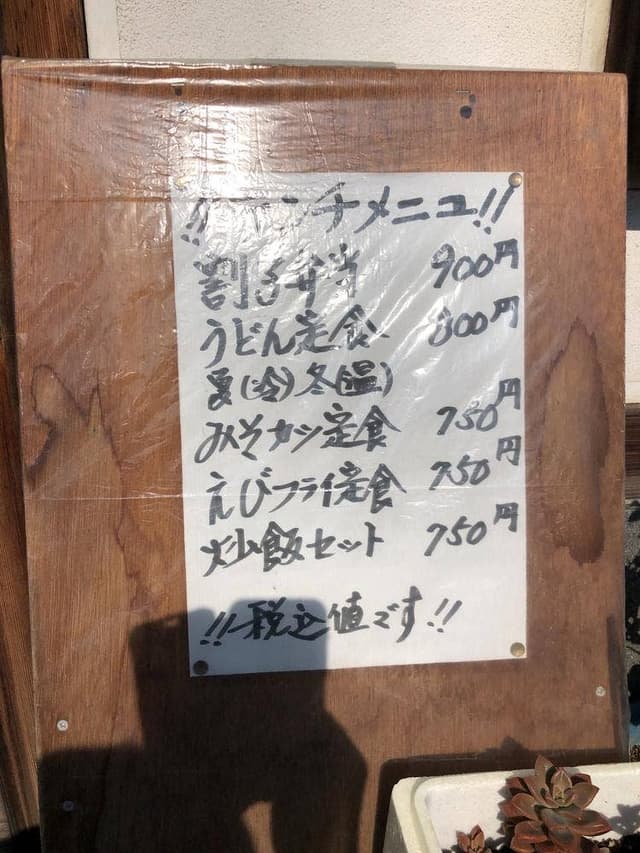 !!ランチメニュ!!
割子弁当 900円
うどん定食 800円
夏(冷)冬(温)
みそカツ定食 750円
えびフライ定食 750円
炒飯セット 750円
!!税込値です!!